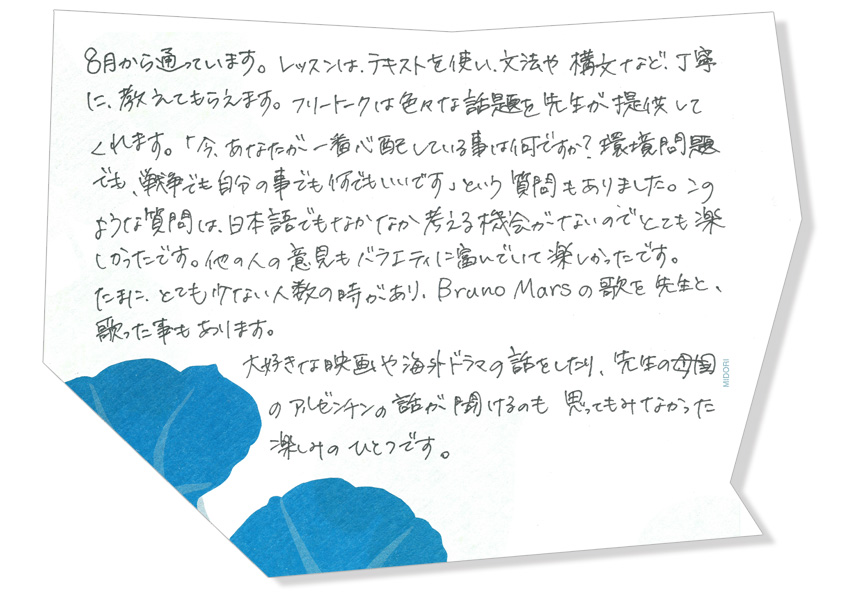 8月から通っています。レッスンは、テキストを使い、文法や構文など、丁寧
に、教えてもらえます。フリートークは色々な話題を先生が提供して
くれます。「今、あなたが一番心配している事は何ですか？環境問題
でも、戦争でも自分の事でも何でもいいです」という質問もありました。この
ような質問は、日本語でもなかなか考える機会がないのでとても楽
しかったです。他の人の意見もバラエティに富んでいて楽しかったです。
たまに、とても少ない人数の時があり、Bruno Marsの歌を先生と、
歌った事もあります。
大好きな映画や海外ドラマの話をしたり、先生の母国
のアルゼンチンの話が聞けるのも思ってもみなかった
楽しみのひとつです。
MIDORI